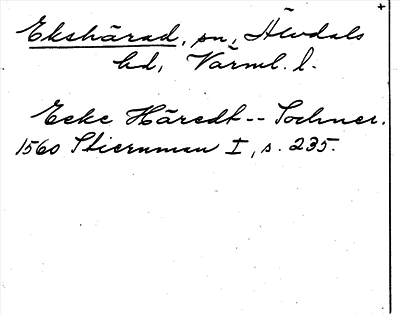 Ekshärad, sn, Älvdals
hd, Värml. l.
Ecke Häredt -- Sochner.
1560 Stiernman I, s. 235.